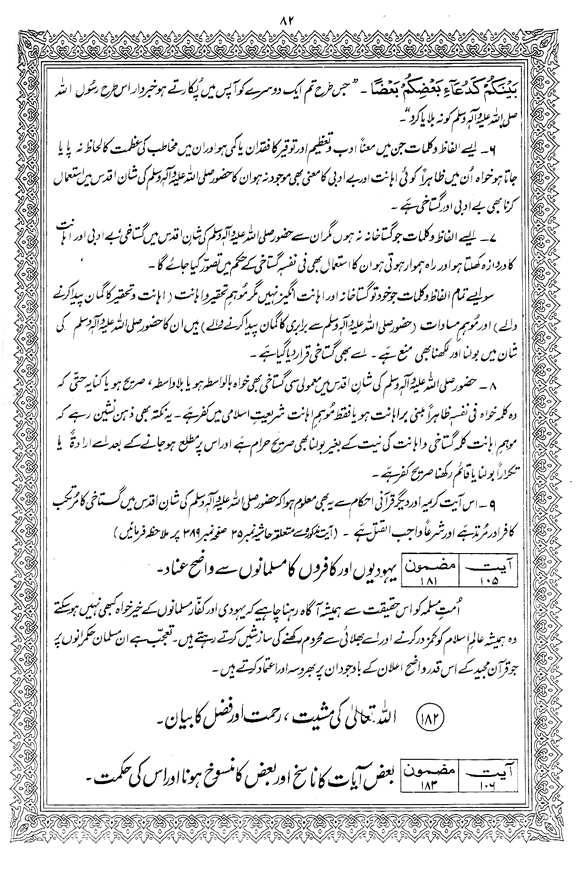 ۸۲
بَيْنَكُمْ كَدُعَآءِ بَعْضِكُمْ بَعْضًا ۔ "جس طرح تم ایک دوسرے کو آپس میں پُکارتے ہو خبردار اس طرح رسُول اللہ
صلی اللہ علیہ وآلہٖ وسلم کو نہ بلایا کرو"۔
۶۔ ایسے الفاظ و کلمات جن میں معناً ادب و تعظیم اور توقیر کا فقدان یا کمی ہو اور ان میں مخاطب کی عظمت کا لحاظ نہ پایا
جاتا ہو خواہ اُن میں ظاہراً کوئی اہانت اور بے ادبی کا معنی بھی موجود نہ ہو ان کا حضور صلی اللہ علیہ وآلہٖ وسلم کی شان اقدس میں استعمال
کرنا بھی بے ادبی اور گستاخی ہے ۔
۷۔ ایسے الفاظ و کلمات جو گستاخانہ نہ ہوں مگر ان سے حضور صلی اللہ علیہ وآلہٖ وسلم کی شانِ اقدس میں گستاخی بے ادبی اور اہانت
کا دروازہ کھلتا ہو اور راہ ہموار ہوتی ہو ان کا استعمال بھی فی نفسہٖ گستاخی کے حکم میں تصوّر کیا جائے گا ۔
سو ایسے تمام الفاظ و کلمات جو خود تو گستاخانہ اور اہانت انگیز نہیں مگر موہمِ تحقیر و اہانت ( اہانت و تحقیر کا گمان پیدا کرنے
والے) اور مُوہمِ مساوات (حضور صلی اللہ علیہ وآلہٖ وسلم سے برابری کا گمان پیدا کرنے والے) ہیں ان کا حضور صلی اللہ علیہ وآلہٖ وسلم کی
شان میں بولنا اور لکھنا بھی منع ہے ۔ اسے بھی گستاخی قرار دیا گیا ہے ۔
۸۔ حضور صلی اللہ علیہ وآلہٖ وسلم کی شانِ اقدس میں معمولی سی گستاخی بھی خواہ بالواسطہ ہو یا بلاواسطہ، صریح ہو یا کنایۃً حتیٰ کہ
وہ کلمہ خواہ فی نفسہٖ ظاہراً مبنی بر اہانت ہو یا فقط مُوہمِ اہانت شریعتِ اسلامی میں کفر ہے ۔ یہ نکتہ بھی ذہن نشین رہے کہ
موہمِ اہانت کلمہ گستاخی و اہانت کی نیت کے بغیر بولنا بھی صریح حرام ہے اور اس پر مطلع ہو جانے کے بعد اسے ارادۃً یا
تکراراً بولنا یا قائم رکھنا صریح کفر ہے ۔
۹۔ اس آیت کریمہ اور دیگر قرآنی احکام سے یہ بھی معلوم ہوا کہ حضور صلی اللہ علیہ وآلہٖ وسلم کی شان اقدس میں گستاخی کا مُرتکب
کافر اور مُرتد ہے اور شرعاً واجب القتل ہے ۔ (آیت مذکورہ سے متعلقہ حاشیہ نمبر ۲۵ صفحہ نمبر ۳۸۹ پر ملاحظہ فرمائیں)
آیت ۱۰۵ مضمون ۱۸۱ یہودیوں اور کافروں کا مسلمانوں سے واضح عناد ۔
اُمتِ مسلمہ کو اس حقیقت سے ہمیشہ آگاہ رہنا چاہیے کہ یہودی اور کفار مسلمانوں کے خیر خواہ کبھی نہیں ہو سکتے
وہ ہمیشہ عالمِ اسلام کو کمزور کرنے اور اسے بھلائی سے محروم رکھنے کی سازشیں کرتے رہتے ہیں ۔ تعجب ہے ان مسلمان حکمرانوں پر
جو قرآن مجید کے اس قدر واضح اعلان کے باوجود ان پر بھروسہ اور اعتماد کرتے ہیں ۔
۱۸۲ اللہ تعالیٰ کی مشیت ، رحمت اور فضل کا بیان ۔
آیت ۱۰۶ مضمون ۱۸۳ بعض آیات کا ناسخ اور بعض کا منسوخ ہونا اور اس کی حکمت ۔